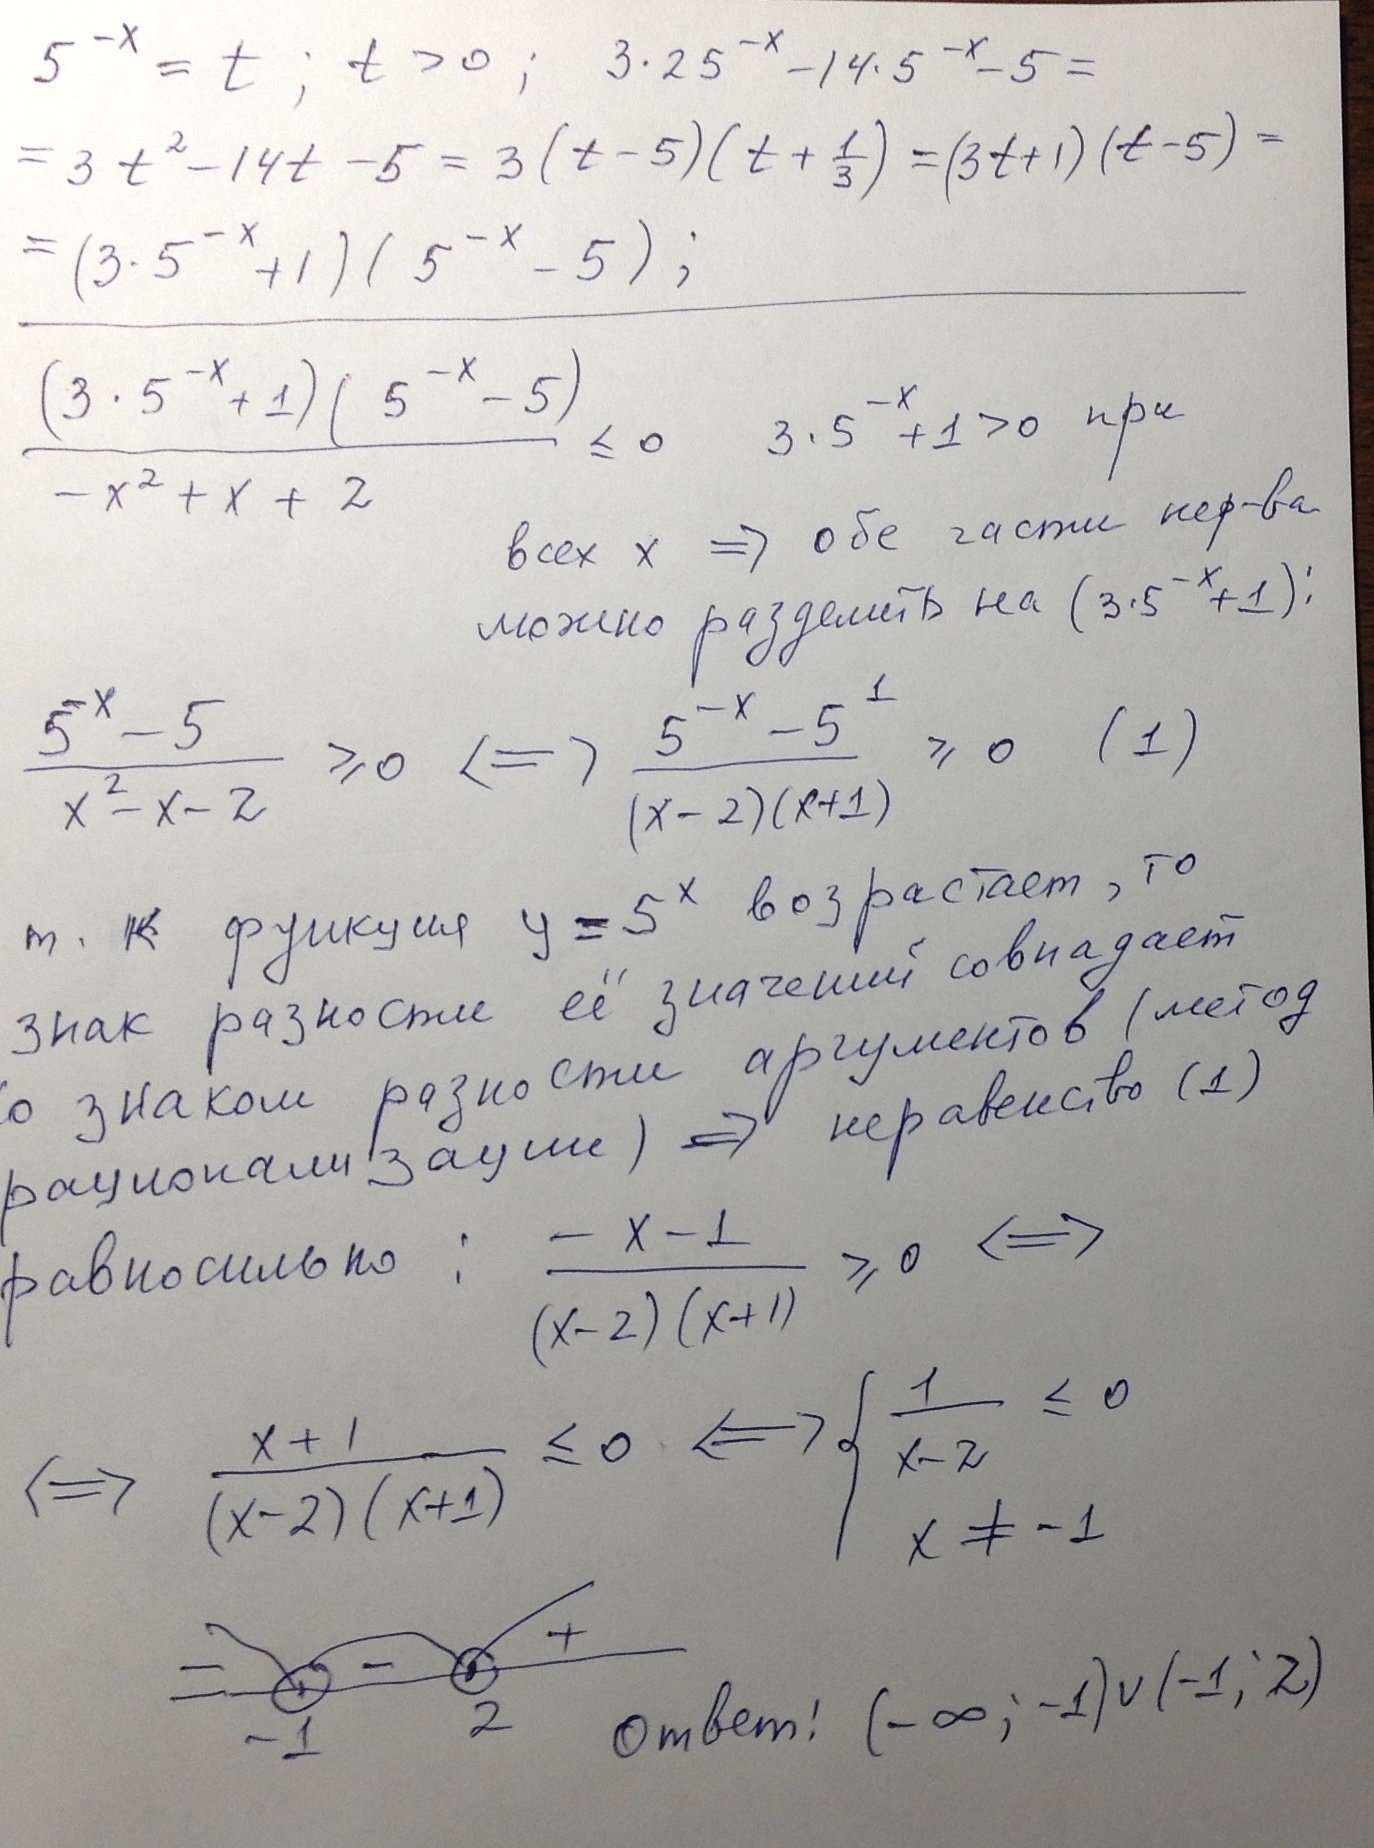 5^{-x} = t ; t > 0 ; 3·25^{-x} - 14·5^{-x} - 5 =
= 3t² - 14t - 5 = 3(t - 5)(t + 1/3) = (3t+1)(t-5) =
= (3·5^{-x} + 1)(5^{-x} - 5) ;
(3·5^{-x} + 1)(5^{-x} - 5) / (-x² + x + 2) ≤ 0 3·5^{-x} + 1 > 0 при
всех x => обе части нер-ва
можно разделить на (3·5^{-x} + 1):
(5^{-x} - 5) / (x² - x - 2) ≥ 0 <=> (5^{-x} - 5^1) / ((x-2)(x+1)) ≥ 0 (1)
т. к функция y = 5^x возрастает, то
знак разности её значений совпадает
со знаком разности аргументов (метод
рационализации) => неравенство (1)
равносильно : (-x-1) / ((x-2)(x+1)) ≥ 0 <=>
<=> (x+1) / ((x-2)(x+1)) ≤ 0 <=> { 1/(x-2) ≤ 0
x ≠ -1
- - +
-1 2
Ответ: (-∞; -1) ∪ (-1; 2)